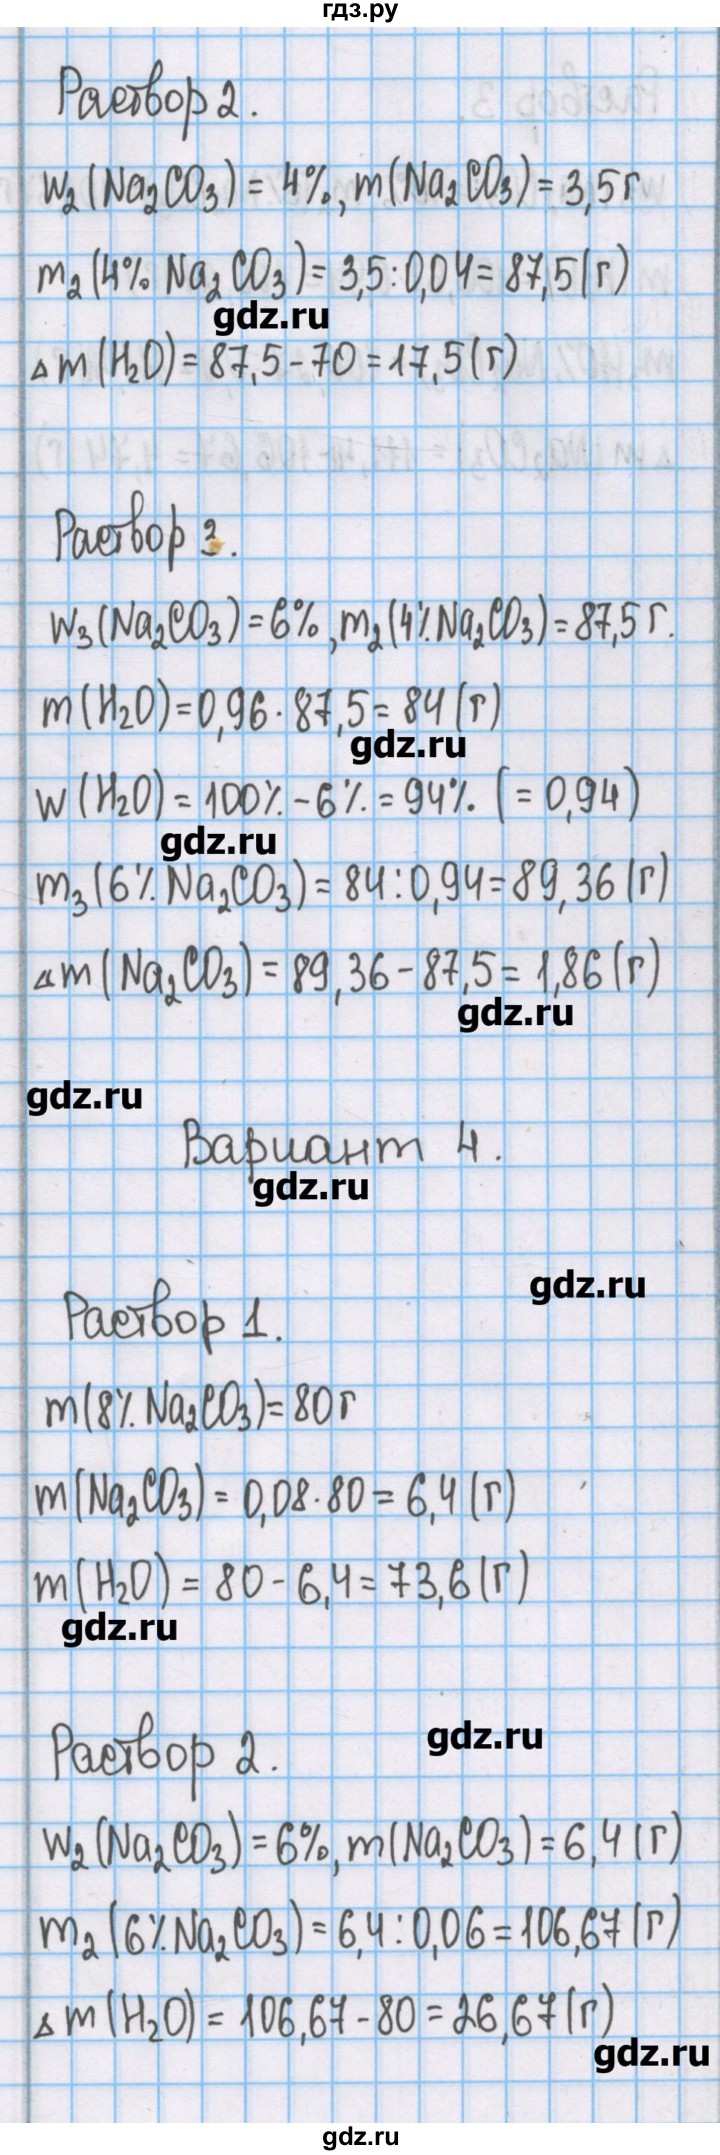 гдз.ру
Раствор 2.
w₂(Na₂CO₃) = 4%, m(Na₂CO₃) = 3,5 г
m₂(4% Na₂CO₃) = 3,5 : 0,04 = 87,5 (г)
gdz.ru
△m(H₂O) = 87,5 - 70 = 17,5 (г)
Раствор 3.
w₃(Na₂CO₃) = 6%, m₂(4% Na₂CO₃) = 87,5 г.
m(H₂O) = 0,96 · 87,5 = 84 (г)
gdz.ru
w(H₂O) = 100% - 6% = 94%. (= 0,94)
gdz.ru
m₃(6% Na₂CO₃) = 84 : 0,94 = 89,36 (г)
△m(Na₂CO₃) = 89,36 - 87,5 = 1,86 (г)
gdz.ru
gdz.ru
Вариант 4.
gdz.ru
gdz.ru
Раствор 1.
m(8% Na₂CO₃) = 80 г
m(Na₂CO₃) = 0,08 · 80 = 6,4 (г)
m(H₂O) = 80 - 6,4 = 73,6 (г)
gdz.ru
Раствор 2.
gdz.ru
w₂(Na₂CO₃) = 6%, m(Na₂CO₃) = 6,4 (г)
m₂(6% Na₂CO₃) = 6,4 : 0,06 = 106,67 (г)
△m(H₂O) = 106,67 - 80 = 26,67 (г)
gdz.ru
gdz.ru